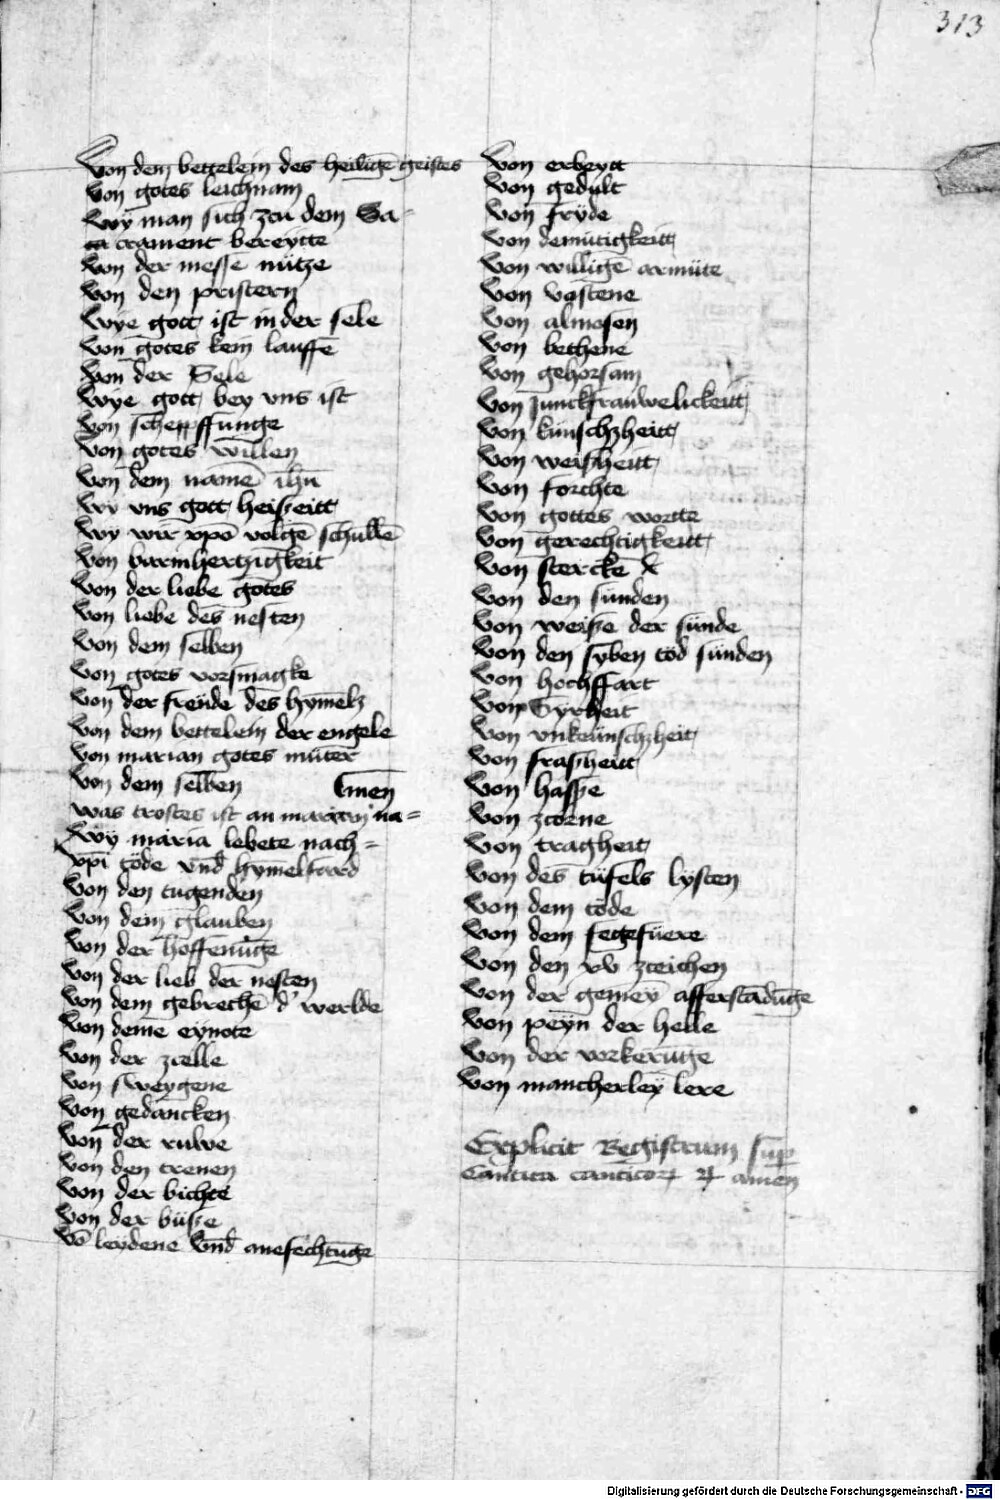 313
Von dem bettelein des heiligē geistes
Von gotes leichnam
Wÿ man sich zcu dem Sa-
crament bereytte
Von der messe nütze
Von den pristern
Wÿe gott ist in der sele
Von gotes kein lauffē
Von der Sele
Wÿe gott bey vns ist
Von scheppffunge
Von gotes willen
Von dem namē ihū
Wi vns gott heiszeitt
Wy wir xpō volgē schullē
Von barmhertzigkeit
Von der liebe gotes
Von liebe des nesten
Von dem selben
Von gotes vorsmagke
Von der freüde des hymelz
Von dem bettelein der engele
Von marian gotes müter
Von dem selben
Was trostes ist an marien na-
men
Wÿ maria lebete nach-
xpī tode vnd hymelfard
Von den tugenden
Von dem glauben
Von der hoffenūge
Von der lieb der nesten
Von dem gebrechē d' werlde
Von deme eynote
Von der zcelle
Von sweygene
Von gedancken
Von der ruwe
Von den trenen
Von der bichte
Von der büsze
Vō leydene vnd anefechtūge
Von erbeytt
Von gedult
Von fryde
Von demütigkeitt
Von willigē armüte
Von vastene
Von almosen
Von bethene
Von gehorsam
Von Junckfrauwelickeitt
Von künschzheitt
Von weiszheitt
Von forchte
Von gottes wortte
Von gerechtigkeitt
Von sterckē
Von den sünden
Von weisze der sünde
Von den syben tod sünden
Von hochffart
Von Gyrheit
Von vnkeünschzheit
Von fraszheitt
Von hasse
Von zcorne
Von tragheit
Von des tüfels lysten
Von dem tode
Von dem fegefüere
Von den xv zceichen
Von der gemey afferstādūge
Von peyn der helle
Von der vorkerūge
Von mancherley lere
Explicit Registrum sup
Cantica canticoꝝ ꝛc amen
Digitalisierung gefördert durch die Deutsche Forschungsgemeinschaft - DFG